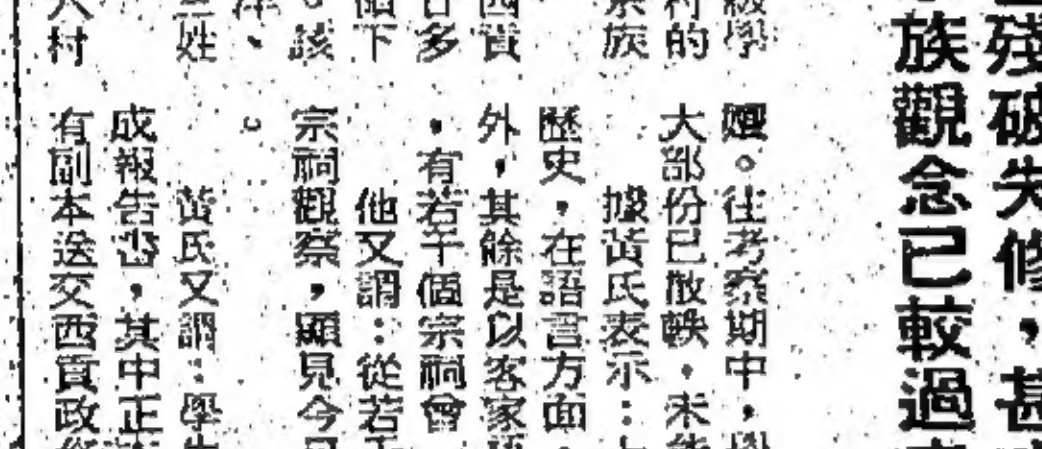 殘破失修，甚
族觀念已較過
級學
村的
族
西貢
多
下
。該
、
三姓
村
。往考察期中，
大部份已散軼，未能
據黃氏表示：
歷史，在語言方面，
外，其餘是以客家語
，有若干個宗祠會
他又謂：從若干
宗祠觀察，顯見今日
。
黃氏又謂：學生
成報告書，其中正
有副本送交西貢政